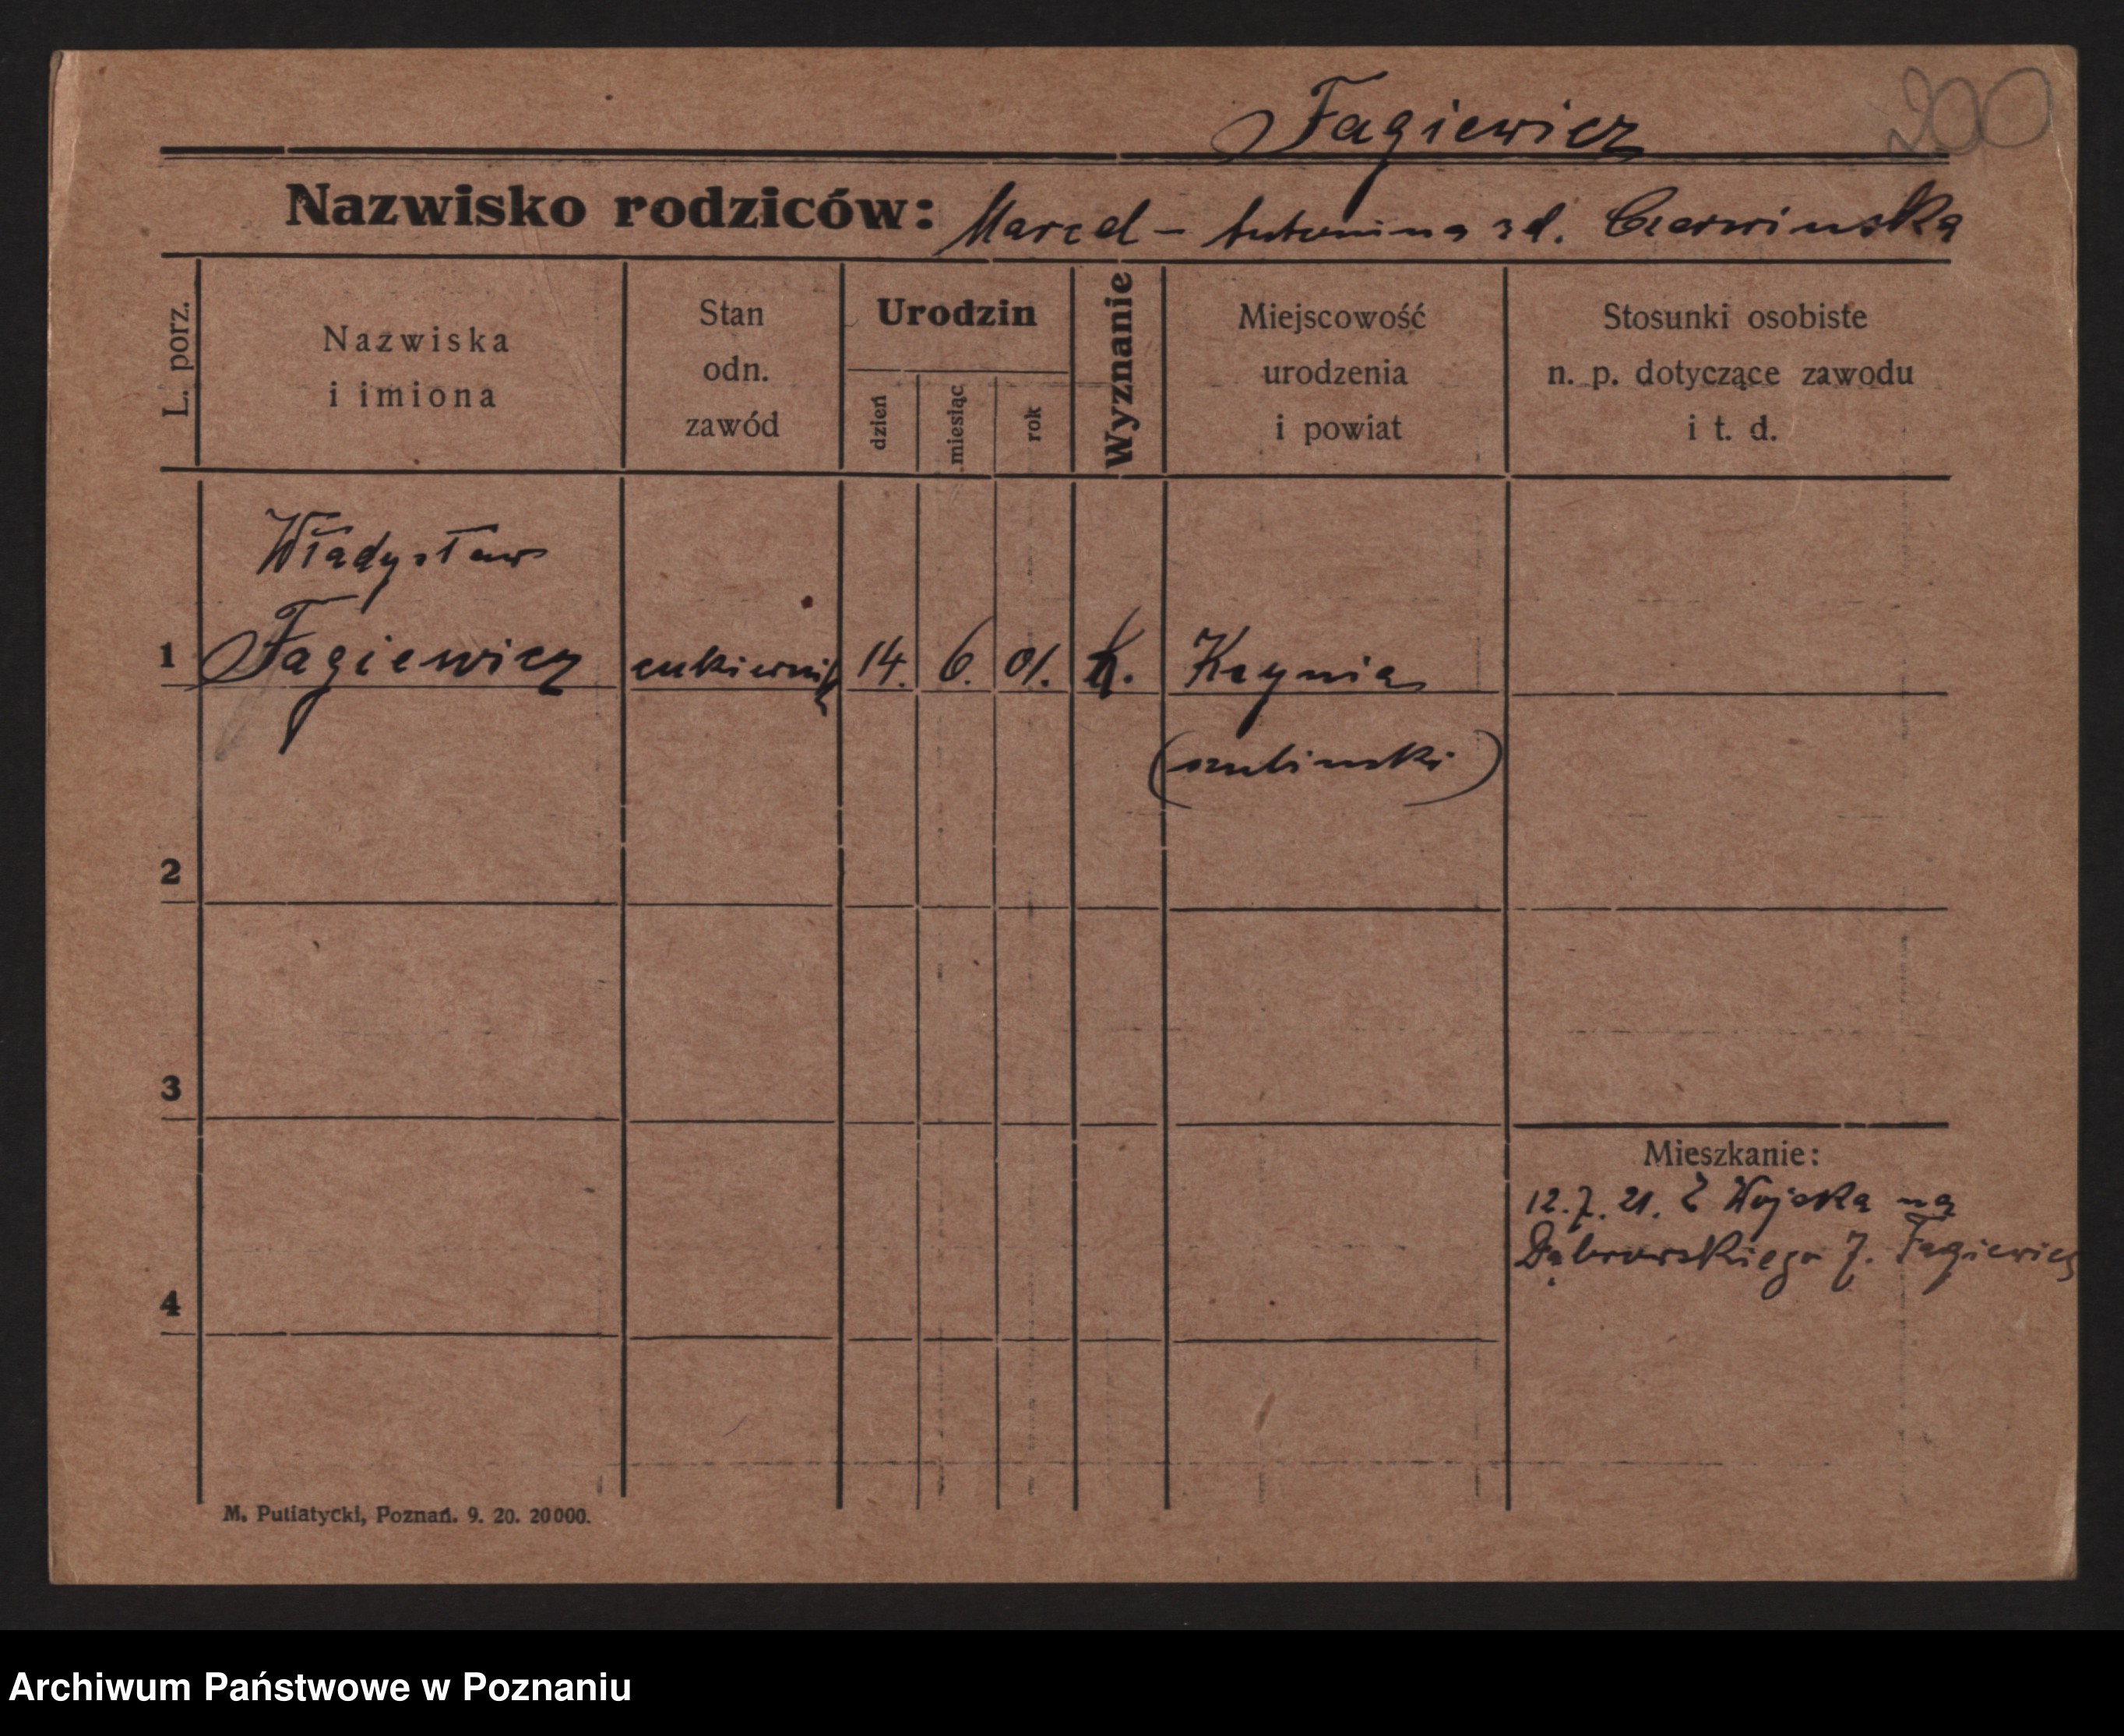 Fagiewicz
200
Nazwisko rodziców: Marcel – Antonina zd. Czerwinska
L. porz.
Nazwiska
i imiona
Stan
odn.
zawód
Urodzin
dzień
miesiąc
rok
Wyznanie
Miejscowość
urodzenia
i powiat
Stosunki osobiste
n. p. dotyczące zawodu
i t. d.
Władysław
1 Fagiewicz cukiernik 14. 6. 01. K. Kcynia
(szubinski)
2
3
4
Mieszkanie:
12.7.21. Z Wojska na
Dąbrowskiego 7. Fagiewicz
M. Putiatycki, Poznań. 9. 20. 20000.
Archiwum Państwowe w Poznaniu